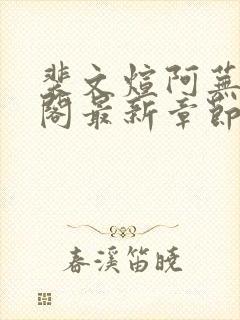 裴文煊阿蕪
閣最新章節
春溪笛曉